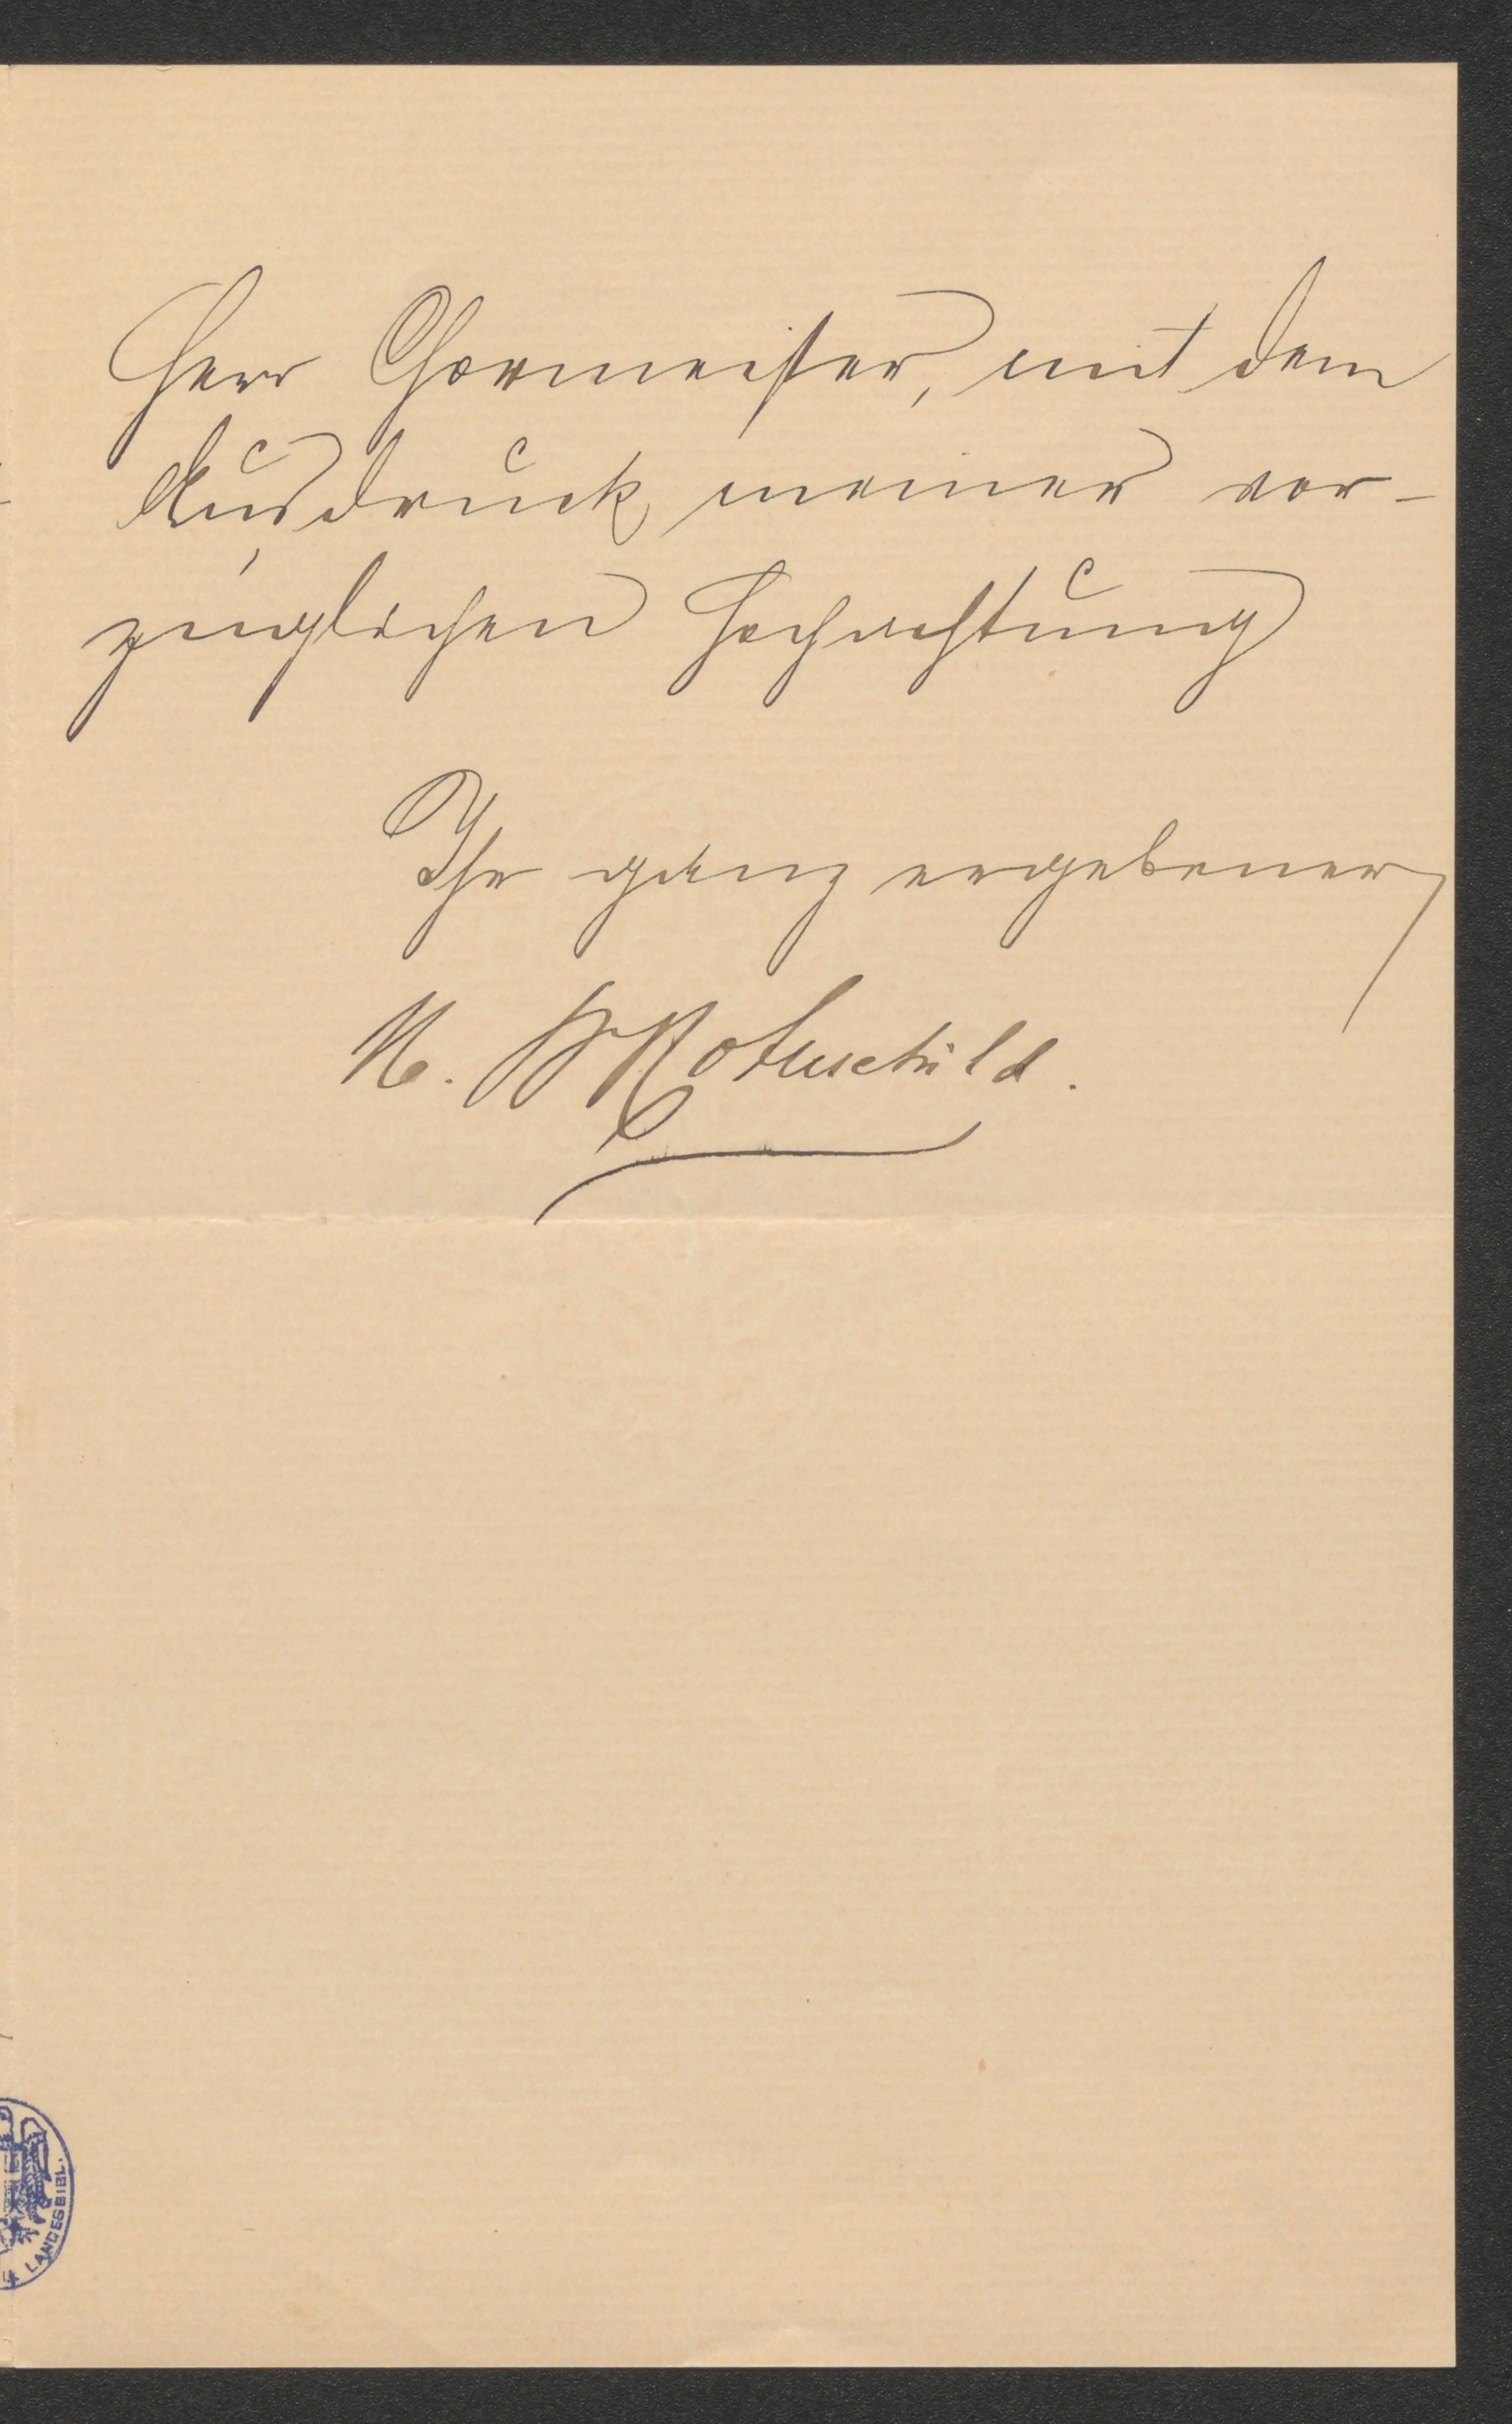 Herr Chormeister, mit dem
Ausdruck meiner vor-
züglichen Hochachtung
Ihr ganz ergebener
Rothschild.
LANDESBIBL.